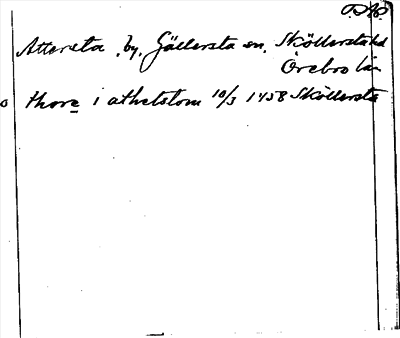 Attersta by, Gällersta sn. Sköllersta hd
Örebro län
o thore i athetstom 10/3 1458 Sköllersta